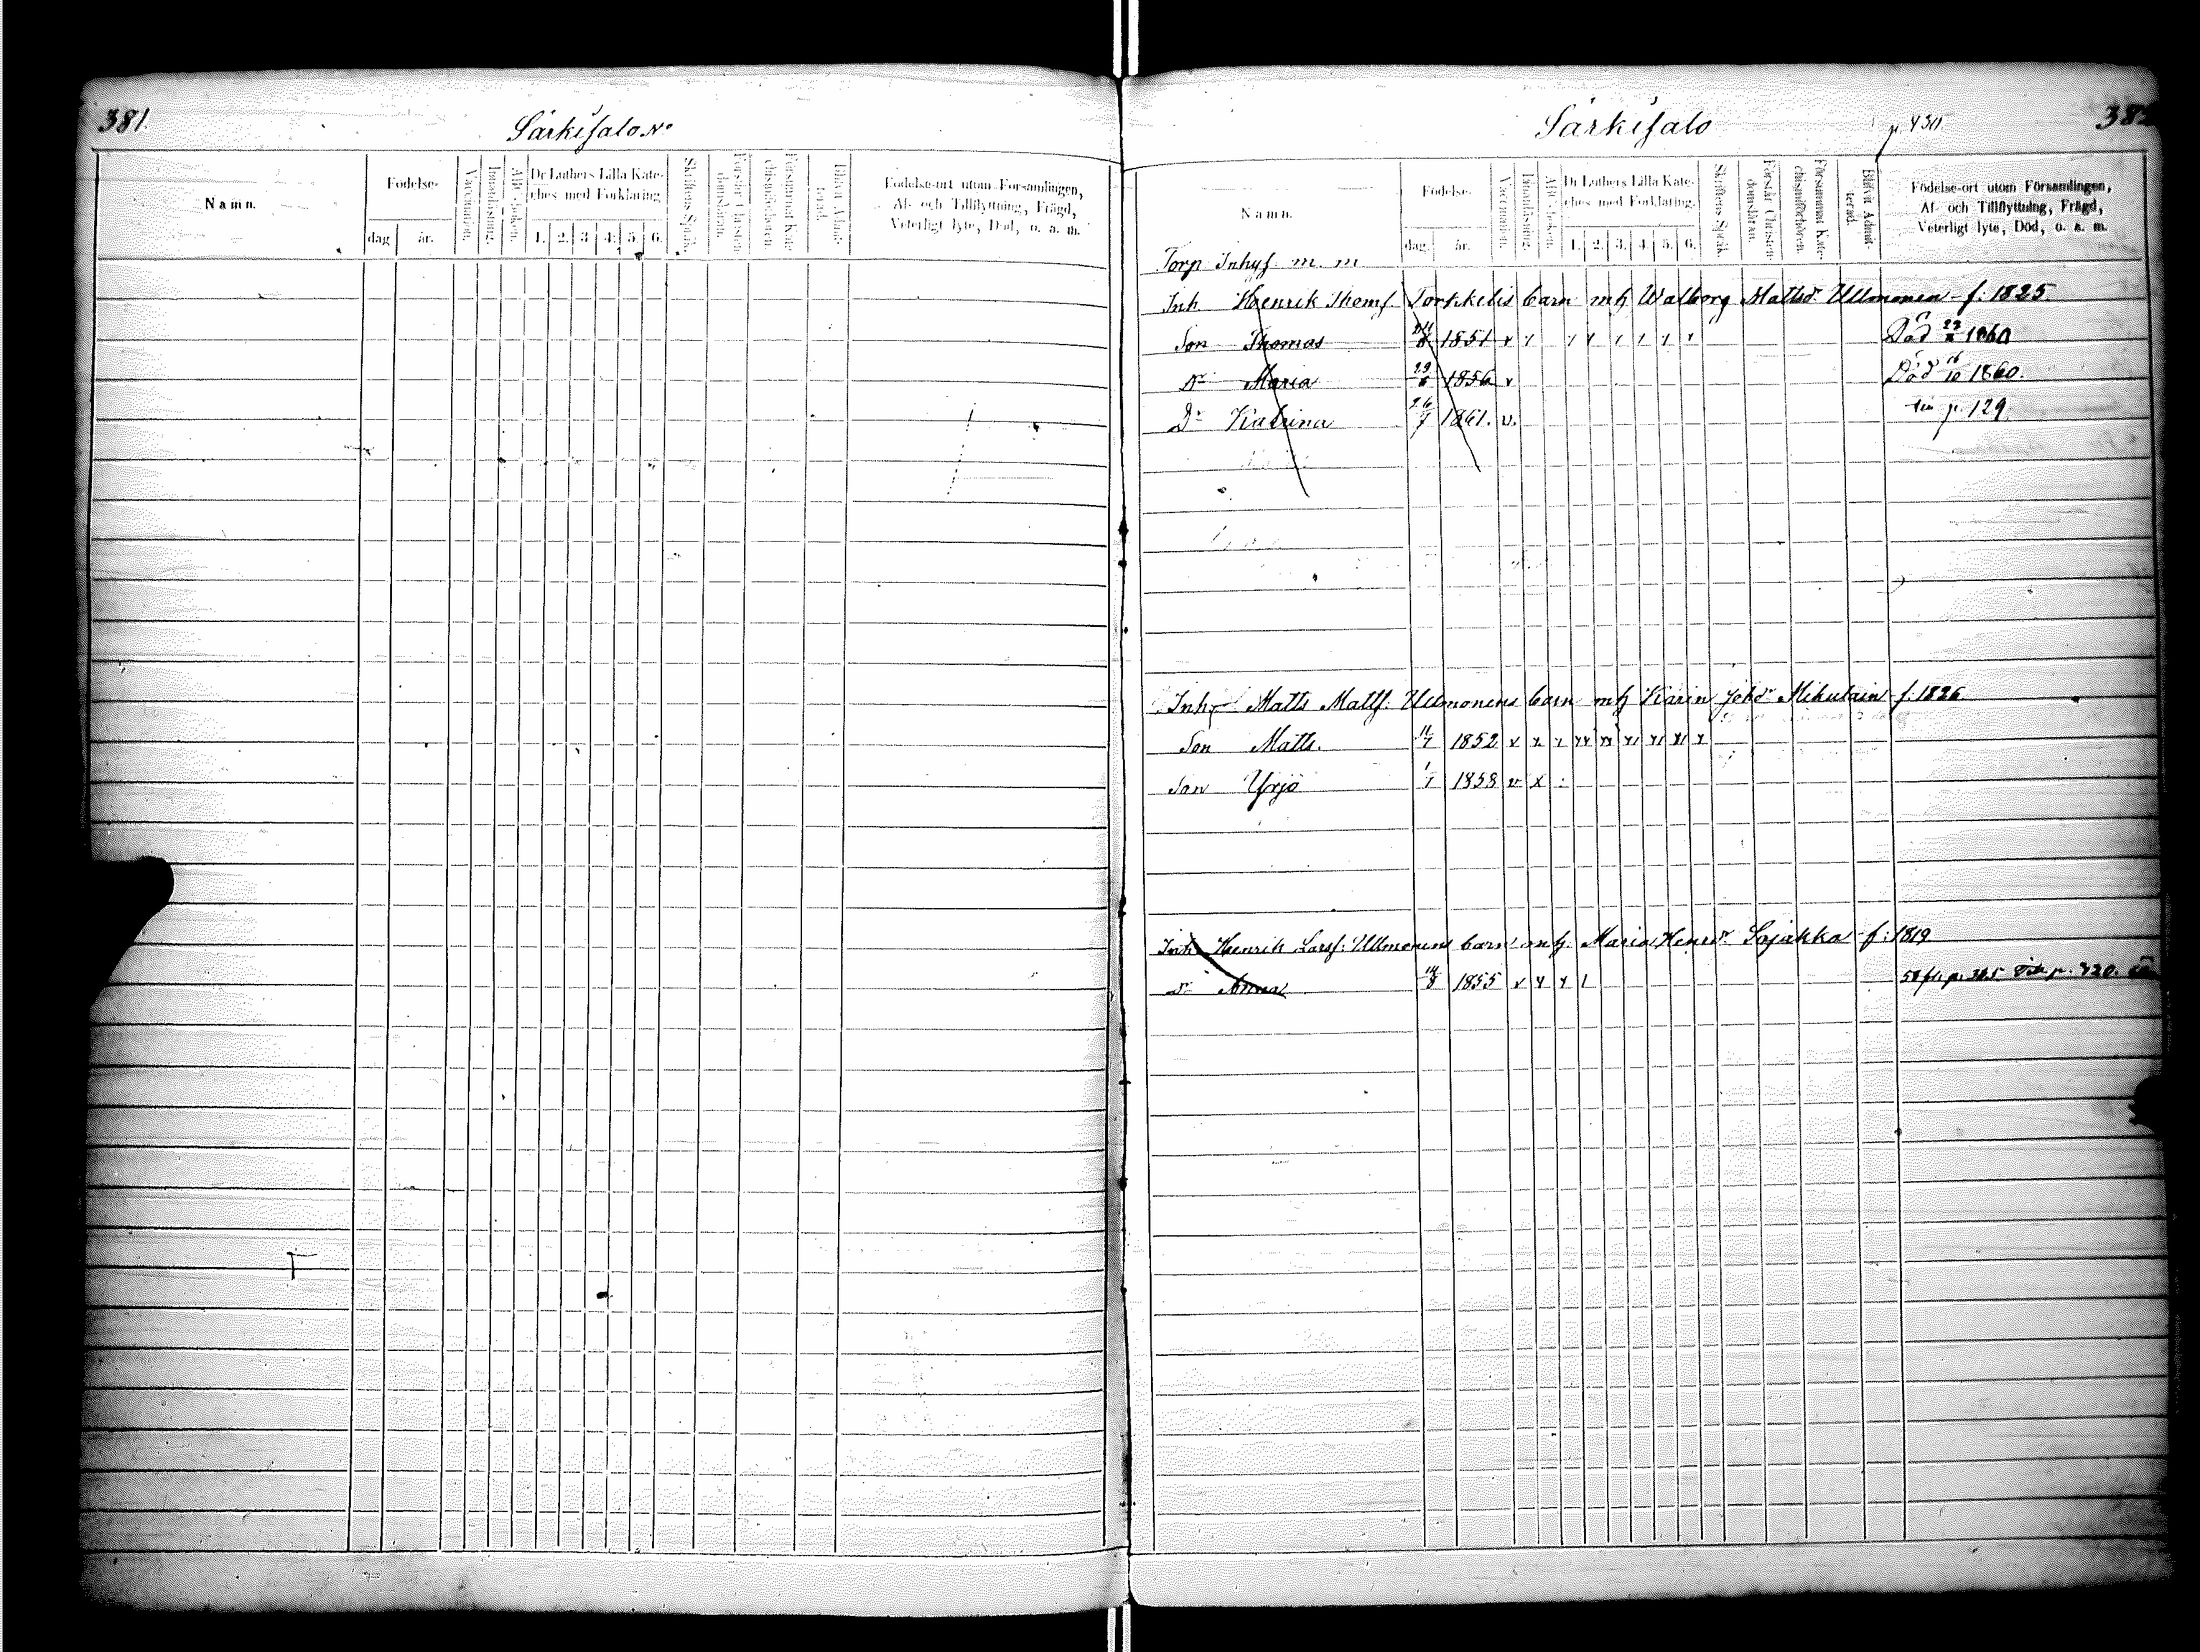 381.
Särkisalo No
Namn.
Födelse-
dag
år.
Vaccination.
Innanläsning.
ABC-boken.
Dr Luthers Lilla Kate-
ches med Förklaring.
1. 2. 3. 4. 5. 6.
Skriftens Språk.
Förstår Christen-
domsläran.
Försummat Kate-
chismiförhören.
Blifvit Admit-
terad.
Födelse-ort utom Församlingen,
Af- och Tillflyttning, Frägd,
Veterligt lyte, Död, o. a. m.
Särkisalo
p. 430
382
Namn.
Födelse-
dag.
år.
Vaccination.
Innanläsning.
ABC-boken.
Dr Luthers Lilla Kate-
ches med Förklaring.
1. 2. 3. 4. 5. 6.
Skriftens Språk.
Förstår Christen-
domsläran.
Försummat Kate-
chismiförhören.
Blifvit Admit-
terad.
Födelse-ort utom Församlingen,
Af- och Tillflyttning, Frägd,
Veterligt lyte, Död, o. a. m.
Torp Inhys m. m
Inh Henrik Thomss. Torkkelis barn mh Walborg Mattsdr Ullmonen f. 1825.
Son Thomas 1851 Död 1860
Dr Maria 1856 v Död 16/10 1860.
Dr Katrina 26/7 1861. v. p. 129.
Inh Matts Matts. Ullmonens barn mh Karin Johdr Mikulain f. 1826
Son Matts. 1852
Son Yrjö 1/7 1858 v x
Inh Henrik Larss. Ullmonens barn mh Maria Henrdr Sojakka f: 1819
dr Anna 1855 p. 420.